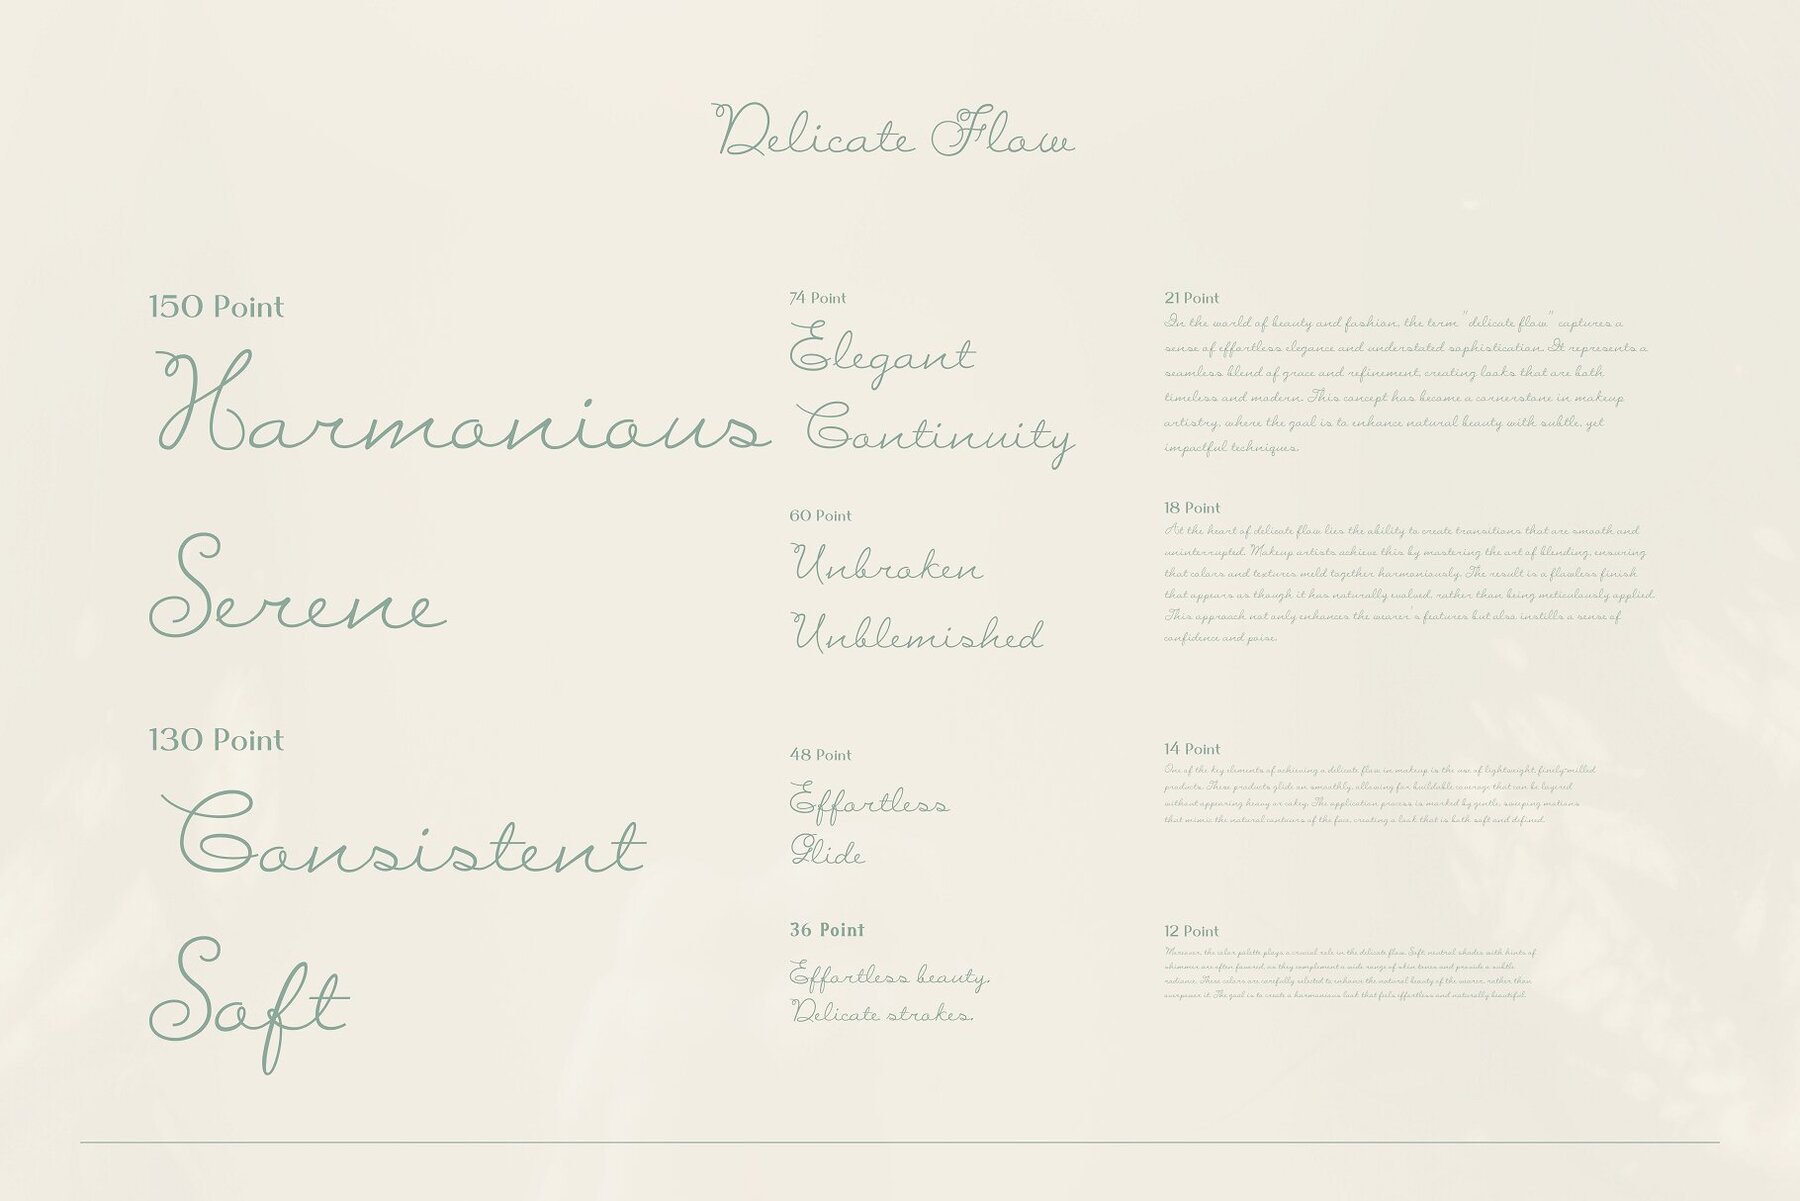 Delicate Flow
150 Point
Harmonious
Serene
130 Point
Consistent
Soft
74 Point
Elegant
Continuity
60 Point
Unbroken
Unblemished
48 Point
Effortless
Glide
36 Point
Effortless beauty.
Delicate strokes.
21 Point
In the world of beauty and fashion, the term "delicate flow" captures a
sense of effortless elegance and understated sophistication. It represents a
seamless blend of grace and refinement, creating looks that are both
timeless and modern. This concept has become a cornerstone in makeup
artistry, where the goal is to enhance natural beauty with subtle, yet
impactful techniques.
18 Point
At the heart of delicate flow lies the ability to create transitions that are smooth and
uninterrupted. Makeup artists achieve this by mastering the art of blending, ensuring
that colors and textures meld together harmoniously. The result is a flawless finish
that appears as though it has naturally evolved, rather than being meticulously applied.
This approach not only enhances the wearer's features but also instills a sense of
confidence and poise.
14 Point
One of the key elements of achieving a delicate flow in makeup is the use of lightweight, finely-milled
products. These products glide on smoothly, allowing for buildable coverage that can be layered
without appearing heavy or cakey. The application process is marked by gentle, sweeping motions
that mimic the natural contours of the face, creating a look that is both soft and defined.
12 Point
Moreover, the color palette plays a crucial role in the delicate flow. Soft, neutral shades with hints of
shimmer are often favored, as they complement a wide range of skin tones and provide a subtle
radiance. These colors are carefully selected to enhance the natural beauty of the wearer, rather than
overpower it. The goal is to create a harmonious look that feels effortless and naturally beautiful.